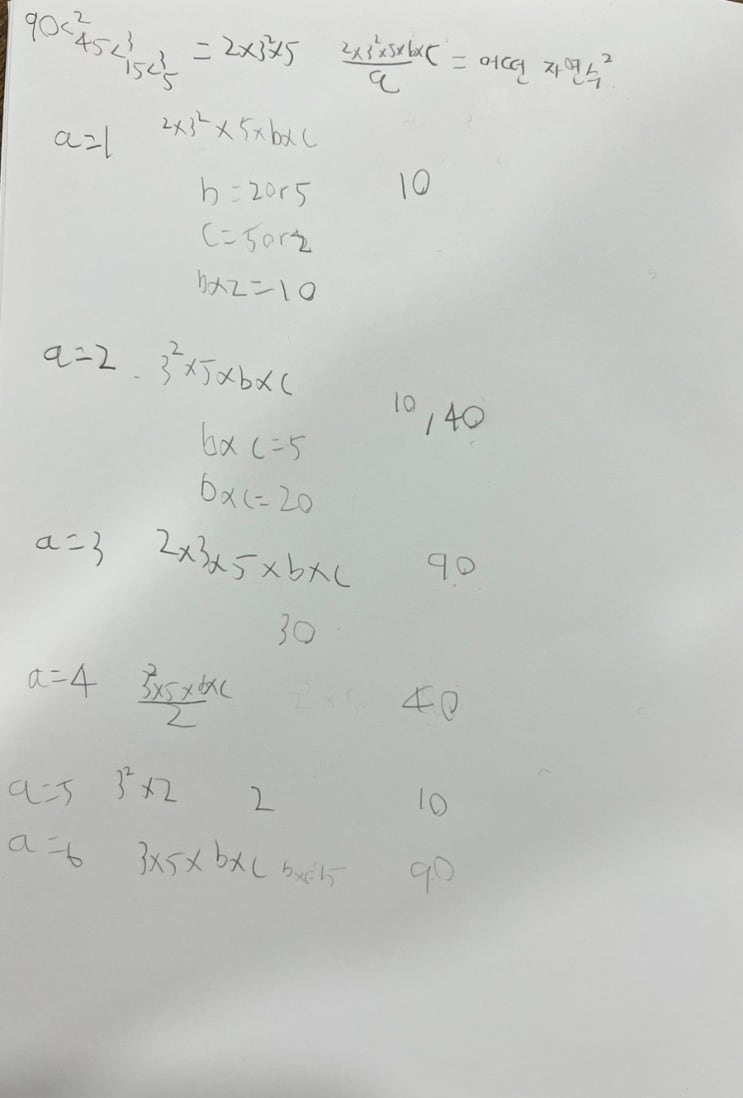 90<2 45<3 15<3 5 = 2×3²×5
2×3²×5×b×c/a = 어떤 자연수²
a=1 2×3²×5×b×c
b=2or5 10
c=5or2
b×2=10
a=2 3²×5×b×c
10, 40
b×c=5
b×c=20
a=3 2×3×5×b×c 90
30
a=4 3²×5×b×c/2 40
a=5 3²×2 2 10
a=6 3×5×b×c b×c=15 90